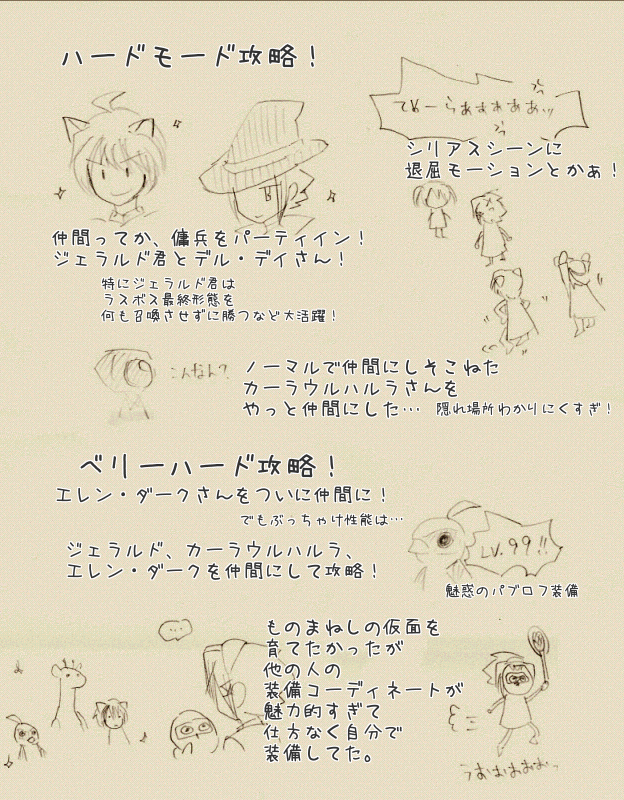 ハードモード攻略！
てぬーらあああああッ
シリアスシーンに
退屈モーションとかぁ！
仲間ってか、傭兵をパーティイン！
ジェラルド君とデル・デイさん！
特にジェラルド君は
ラスボス最終形態を
何も召喚させずに勝つなど大活躍！
こんなん？
ノーマルで仲間にしそこねた
カーラウルハルラさんを
やっと仲間にした… 隠れ場所わかりにくすぎ！
ベリーハード攻略！
エレン・ダークさんをついに仲間に！
でもぶっちゃけ性能は…
ジェラルド、カーラウルハルラ、
エレン・ダークを仲間にして攻略！
LV.99!!
魅惑のパブロフ装備
ものまねしの仮面を
育てたかったが
他の人の
装備コーディネートが
魅力的すぎて
仕方なく自分で
装備してた。
うおおおおおっ